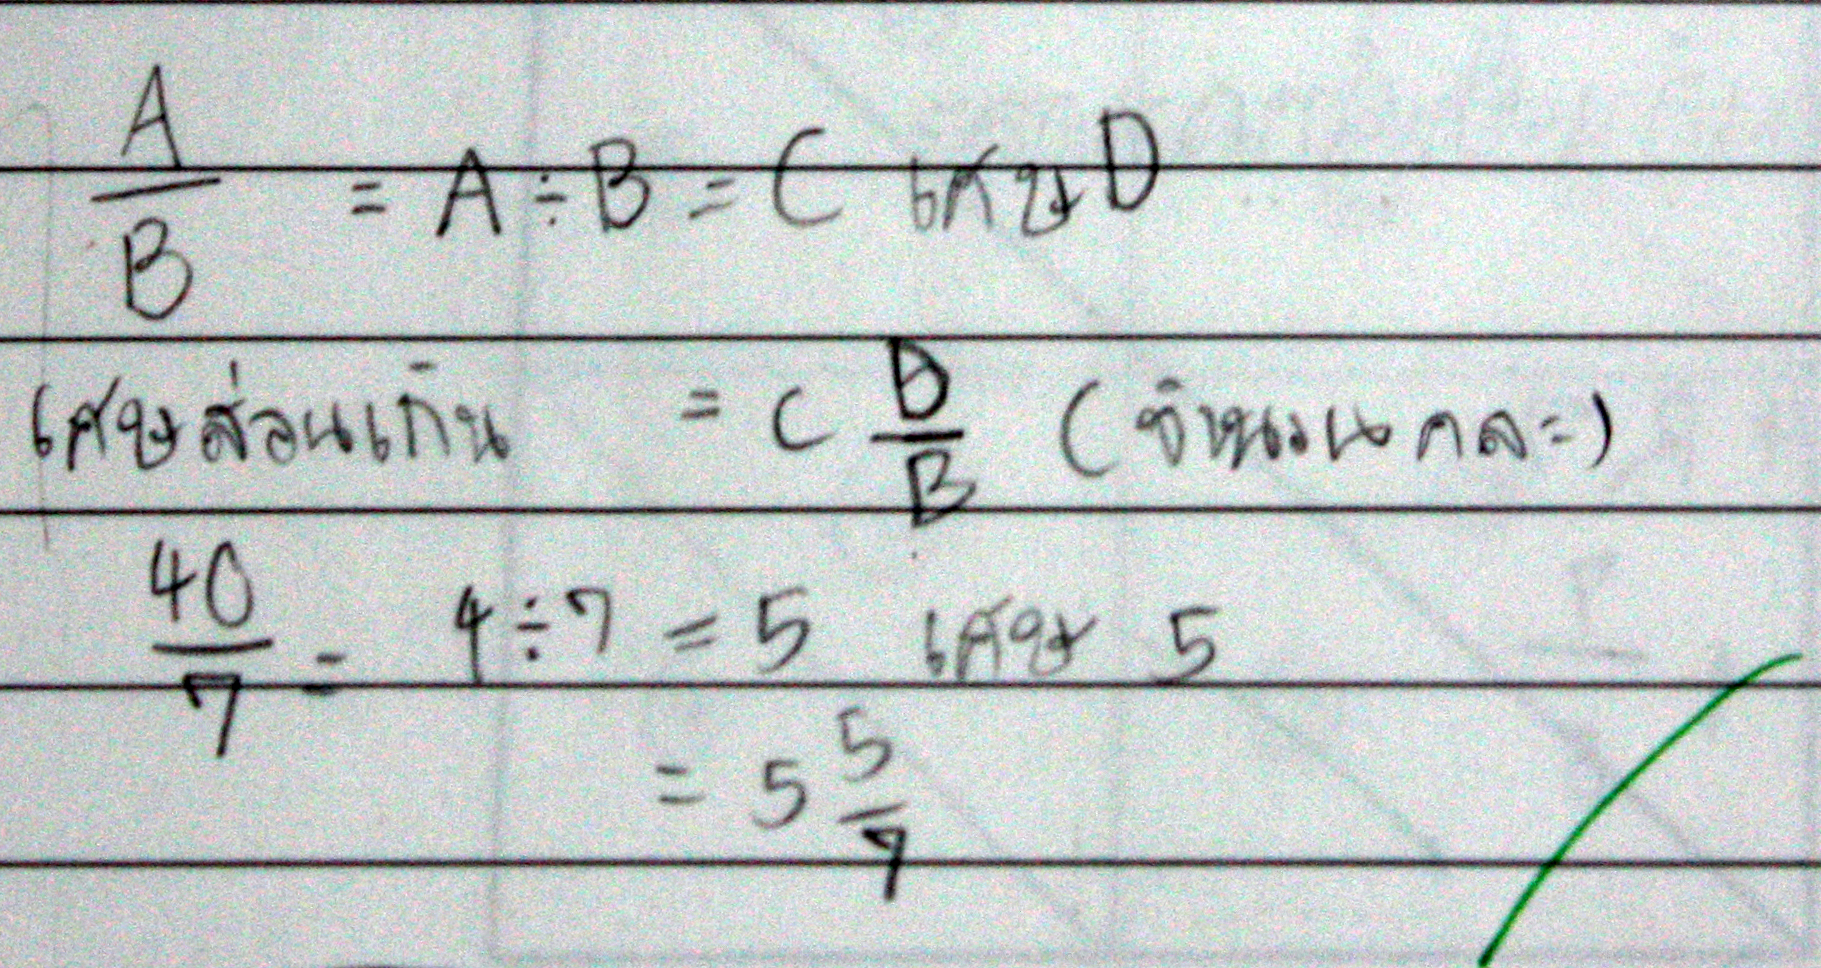 A/B = A ÷ B = C เศษ D
เศษส่วนเกิน = C D/B (จำนวนคละ)
40/7 = 4 ÷ 7 = 5 เศษ 5
= 5 5/7